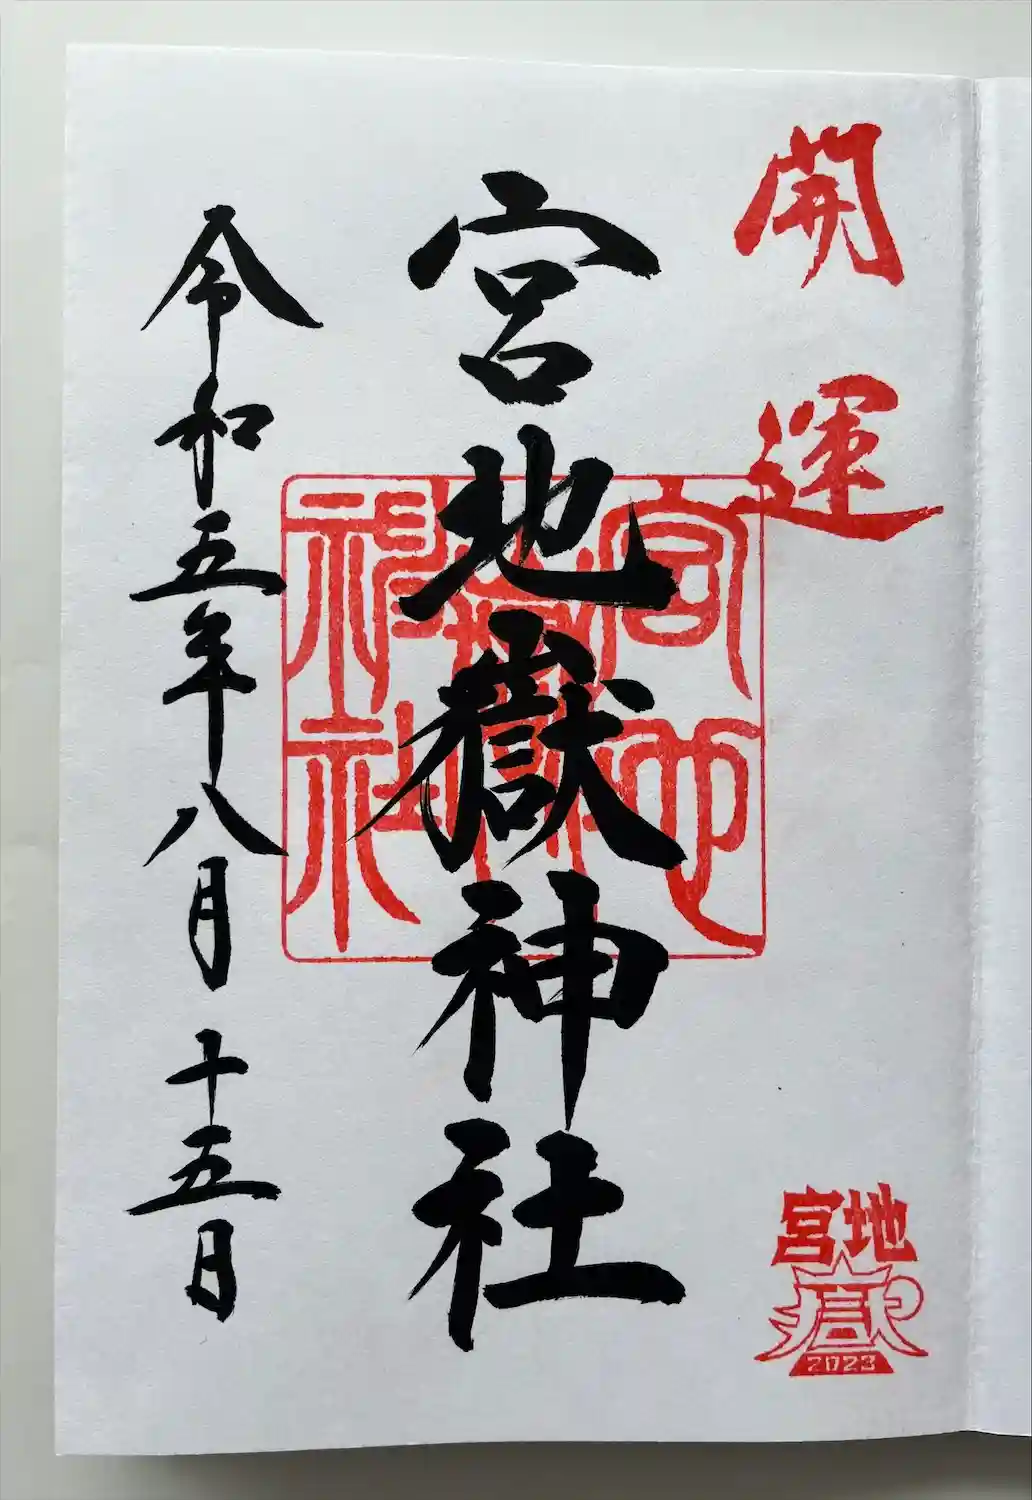 開運
宮地嶽神社
宮地嶽神社
令和五年八月十五日
宮地
嶽
2023